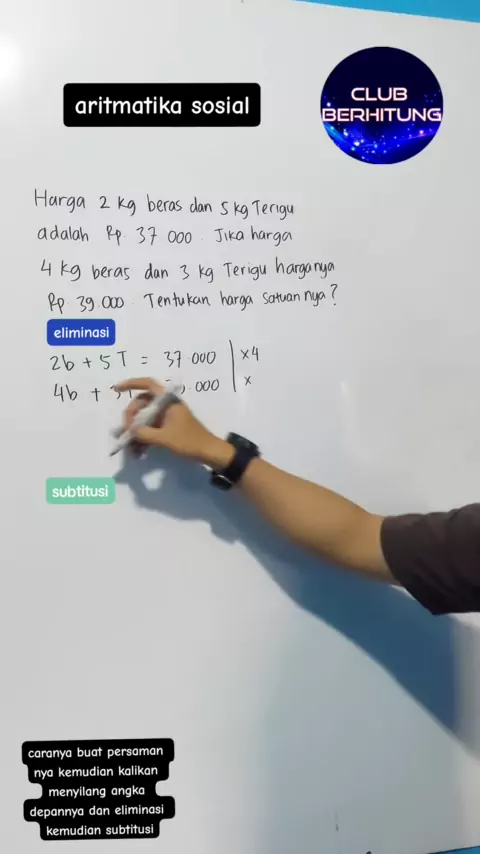 aritmatika sosial
CLUB
BERHITUNG
Harga 2 kg beras dan 5 kg Terigu
adalah Rp. 37 000. Jika harga
4 kg beras dan 3 kg Terigu harganya
Rp 39.000. Tentukan harga satuannya?
eliminasi
2b + 5T = 37.000 | ×4
4b + .000 | ×
subtitusi
caranya buat persaman
nya kemudian kalikan
menyilang angka
depannya dan eliminasi
kemudian subtitusi